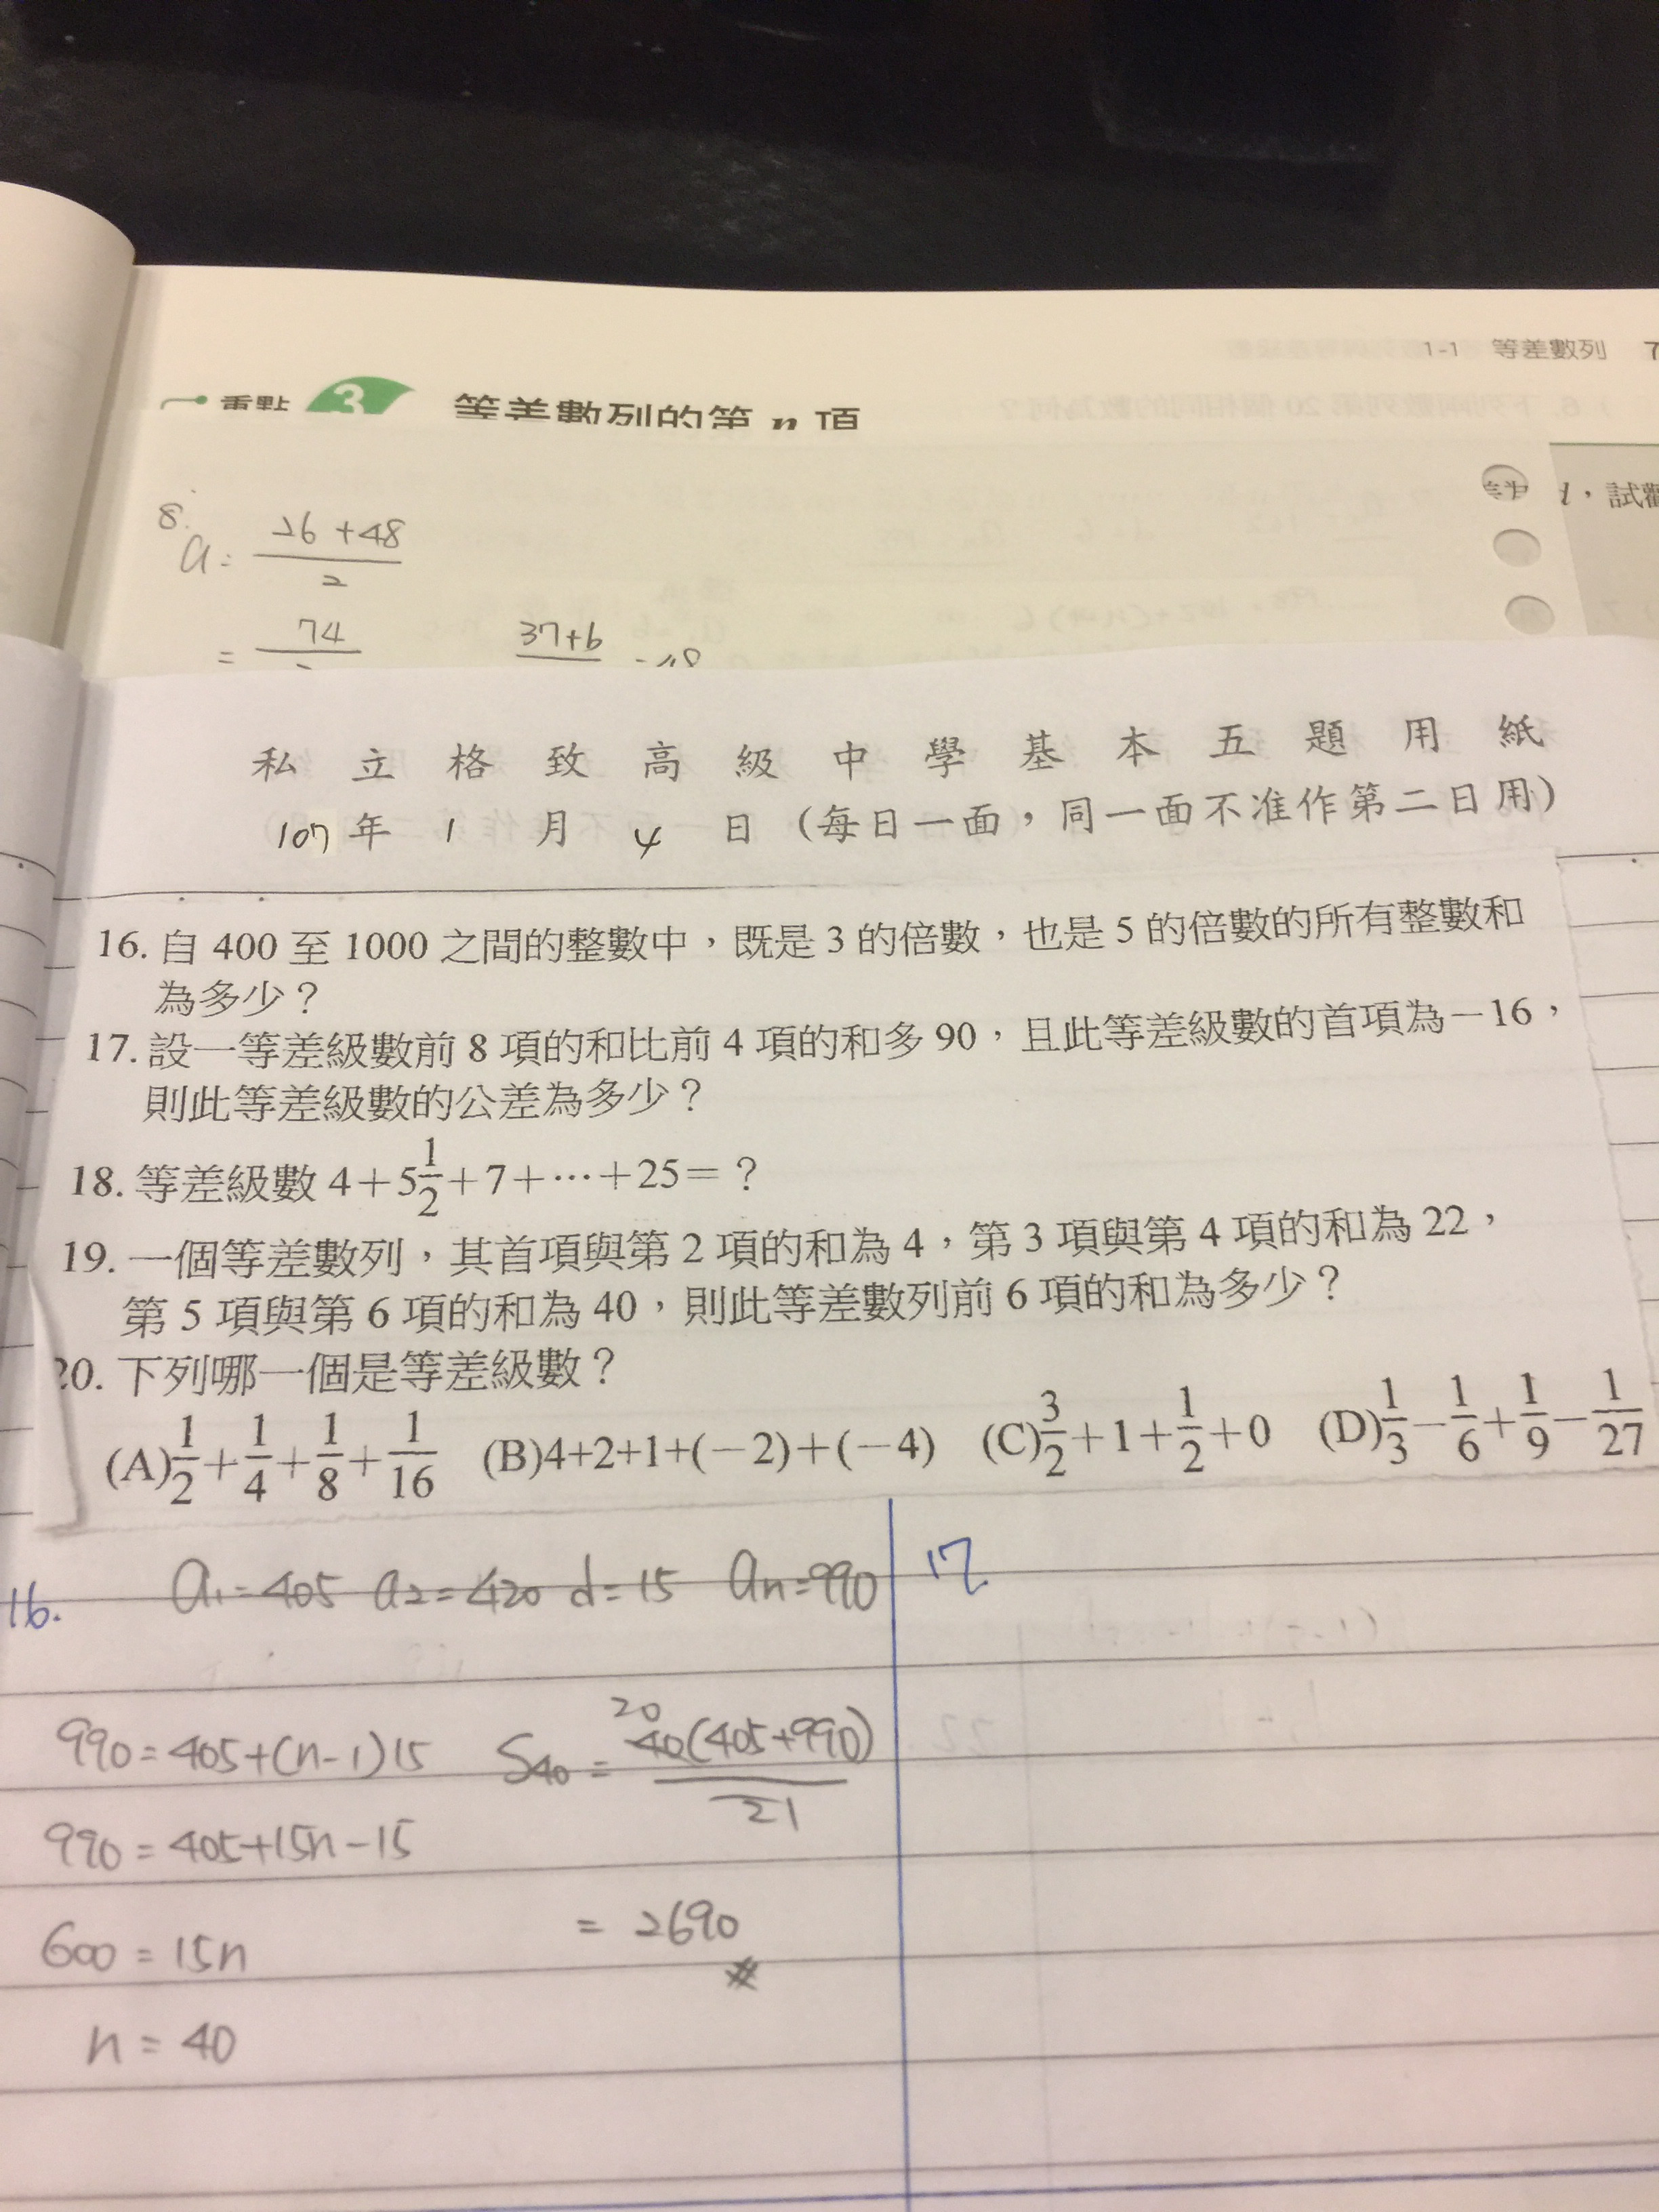 1-1 等差數列 7
重點 3 等差數列的第 n 項
，試觀
8.
a = \frac{26+48}{2}
= \frac{74}{2} \frac{37+b}{}
私立格致高級中學基本五題用紙
107 年 1 月 4 日（每日一面，同一面不准作第二日用）
16. 自 400 至 1000 之間的整數中，既是 3 的倍數，也是 5 的倍數的所有整數和
為多少？
17. 設一等差級數前 8 項的和比前 4 項的和多 90，且此等差級數的首項為－16，
則此等差級數的公差為多少？
18. 等差級數 4＋5\frac{1}{2}＋7＋…＋25＝？
19. 一個等差數列，其首項與第 2 項的和為 4，第 3 項與第 4 項的和為 22，
第 5 項與第 6 項的和為 40，則此等差數列前 6 項的和為多少？
20. 下列哪一個是等差級數？
(A)\frac{1}{2}+\frac{1}{4}+\frac{1}{8}+\frac{1}{16} (B)4+2+1+(－2)+(－4) (C)\frac{3}{2}+1+\frac{1}{2}+0 (D)\frac{1}{3}－\frac{1}{6}+\frac{1}{9}－\frac{1}{27}
16. a₁=405 a₂=420 d=15 an=990
990=405+(n-1)15
990=405+15n-15
600=15n
n=40
S₄₀ = \frac{40(405+990)}{21}
20
= 2690
#
17.